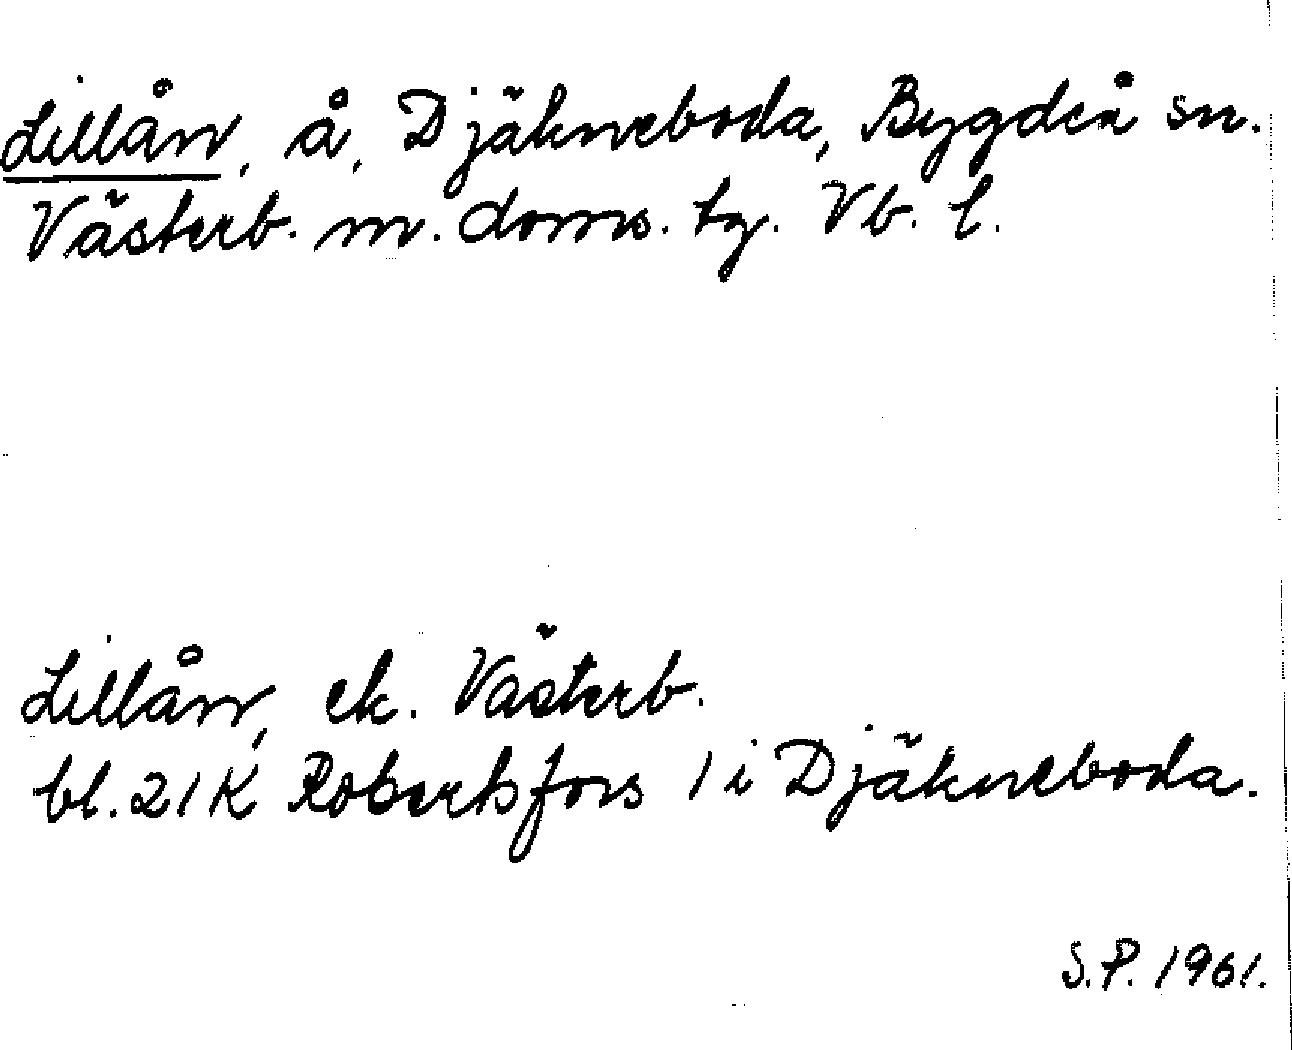 Lillån, å, Djäkneboda, Bygdeå sn.
Västerb. m. doms. tg. Vb. l.
Lillån, ek. Västerb.
bl. 21K Robertsfors 1 i Djäkneboda.
S.P. 1961.